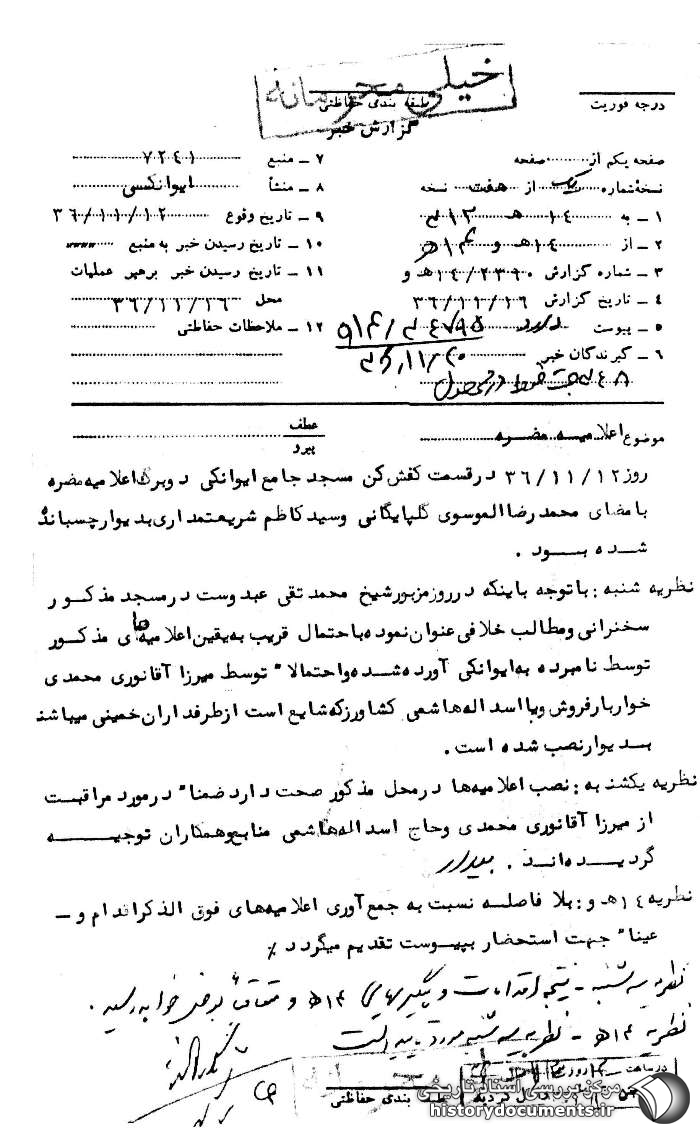 خیلی محرمانه
درجه فوریت
طبقه بندی حفاظتی
گزارش خبر
صفحه یکم از صفحه
نسخه شماره یک از هفت نسخه
۱ – به ۱۴ هـ ۱۳
۲ – از ۱۴هـ و
۳ – شماره گزارش ۱۴/۲۳۹۰هـ و
۴ – تاریخ گزارش ۳۶/۱۱/۱۶
۵ – پیوست دارد
۶ – گیرندگان خبر
۷ – منبع ۷۲۴۱
۸ – منشأ ایوانکسی
۹ – تاریخ وقوع ۳۶/۱۱/۱۲
۱۰ – تاریخ رسیدن خبر به منبع
۱۱ – تاریخ رسیدن خبر برهبر عملیات
محل ۳۶/۱۱/۱۶
۱۲ – ملاحظات حفاظتی
موضوع اعلامیه مضره
عطف
پیرو
روز ۳۶/۱۱/۱۲ در قسمت کفش کن مسجد جامع ایوانکی دو برگ اعلامیه مضره
با مضای محمد رضا الموسوی گلپایگانی و سید کاظم شریعتمداری بدیوار چسبانده
شده بسود .
نظریه شنبه : با توجه باینکه در روز مزبور شیخ محمد تقی عبدوست در مسجد مذکور
سخنرانی و مطالب خلافی عنوان نموده باحتمال قریب به یقین اعلامیه های مذکور
توسط نامبرده به ایوانکی آورده شده و احتمالا" توسط میرزا آقانوری محمدی
خواربار فروش و یا اسداله هاشمی کشاورز که شایع است از طرفداران خمینی میباشند
بسدیوار نصب شده است .
نظریه یکشنبه : نصب اعلامیه ها در محل مذکور صحت دارد ضمنا" در مورد مراقبت
از میرزا آقانوری محمدی و حاج اسداله هاشمی منابع و همکاران توجیه
گردیده اند . بیدار
نظریه ۱۴هـ و : بلا فاصله نسبت به جمع آوری اعلامیه های فوق الذکر اقدام و –
عینا" جهت استحضار بپیوست تقدیم میگردد ٪
نظریه سه شنبه – نتیجه اقدامات و پیگیریهای ۱۴هـ و متعاقباً بعرض خواهد رسید .
نظریه ۱۴هـ – نظریه سه شنبه مورد تایید است
طبقه بندی حفاظتی
مرکز بررسی اسناد تاریخی
historydocuments.ir